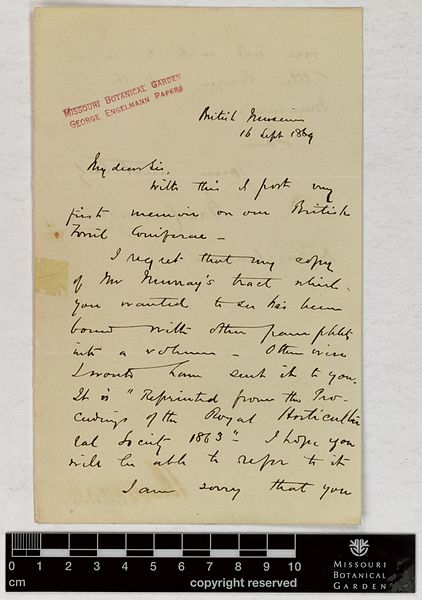 MISSOURI BOTANICAL GARDEN
GEORGE ENGELMANN PAPERS
British Museum
16 Sept 1869
My dear Sir,
With this I post my
first memoir on our British
Fossil Coniferae –
I regret that my copy
of Mr Murray's tract which
you wanted to see has been
bound with other pamphlets
into a volume – Otherwise
I would have sent it to you.
It is "Reprinted from the Pro-
ceedings of the Royal Horticultur
al Society 1863" I hope you
will be able to refer to it
I am sorry that you
0 1 2 3 4 5 6 7 8 9 10
cm
copyright reserved
MISSOURI
BOTANICAL
GARDEN